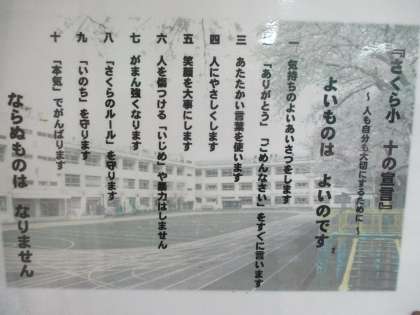 『さくら小 十の宣言』
～ 人も自分も大切にするために ～
よいものは よいのです
一 気持ちのよいあいさつをします
二 「ありがとう」「ごめんなさい」をすぐに言います
三 あたたかい言葉を使います
四 人にやさしくします
五 笑顔を大事にします
六 人を傷つける「いじめ」や暴力はしません
七 がまん強くなります
八 「さくらのルール」を守ります
九 「いのち」を守ります
十 「本気」でがんばります
ならぬものは なりません